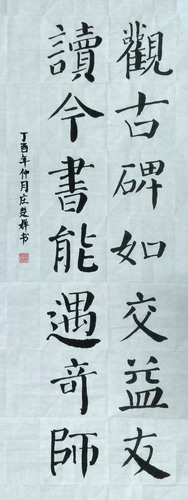 觀古碑如交益友
讀今書能遇奇師
丁酉年仲月庄楚婵书